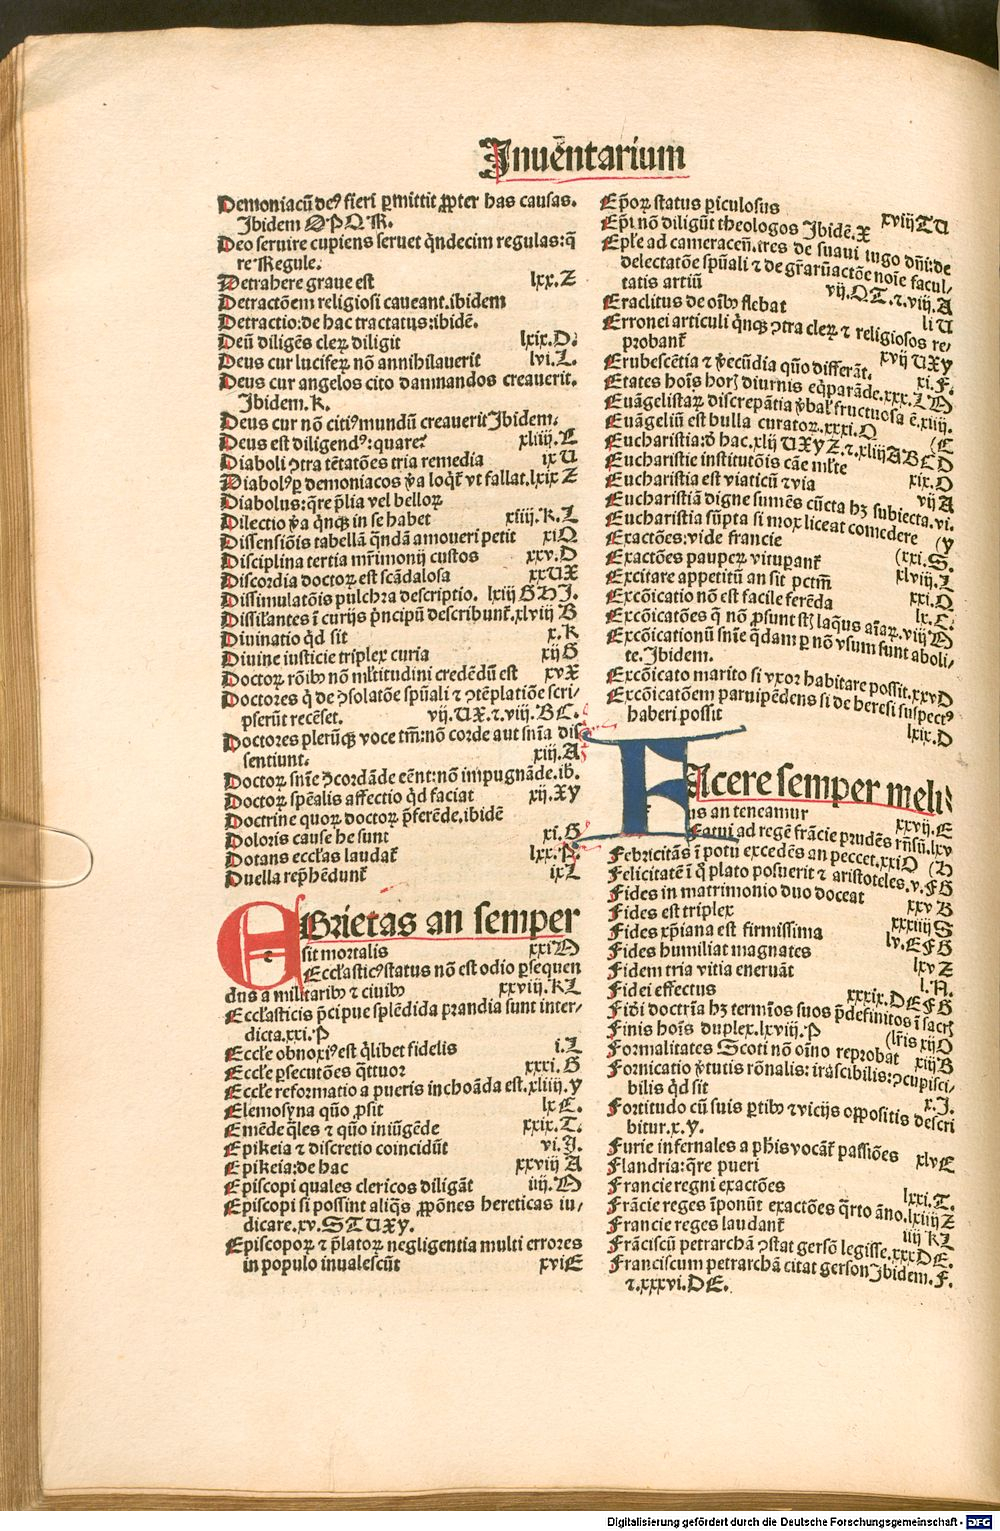 Inuẽntarium
Demoniacũ deꝰ fieri ꝑmittit ꝓpter has causas.
Ibidem O P Q R.
Deo seruire cupiens seruet q̃ndecim regulas: q̃
re Regule.
Detrahere graue est lxx. Z
Detractõem religiosi caueant. ibidem
Detractio: de hac tractatus: ibidẽ.
Deũ diligẽs cleꝝ diligit lxix. D.
Deus cur luciferꝝ nõ annihilauerit lvi. L.
Deus cur angelos cito damnandos creauerit.
Ibidem. K.
Deus cur nõ citiꝰ mundũ creauerit Ibidem.
Deus est diligendꝰ: quare? xliiij. C
Diaboli ꝯtra tẽtatões tria remedia ix U
Diabolꝰ ꝑ demoniacos v̾a loq̃t̃ vt fallat. lxix Z
Diabolus: q̃re p̃lia vel belloꝝ
Dilectio v̾a q̃nqꝫ in se habet xiiij. K. L
Dissensiõis tabellã q̃ndã amoueri petit xi Q
Disciplina tertia mr̃imonij custos xxv. D
Discordia doctoꝝ est scãdalosa xx U X
Dissimulatõis pulchra descriptio. lxiij G H J.
Dissil̃antes ĩ curijs p̃ncipũ describunt̃. xlviij B
Diuinatio qd̃ sit x. K
Diuine iusticie triplex curia xij G
Doctoꝝ rõibꝰ nõ ml̃titudini credẽdũ est xv X
Doctores q̃ de ꝯsolatõe spũali ⁊ ꝯtẽplatiõe scri-
pserũt recẽset. vij. U X. ⁊. viij. B C.
Doctores pleruqꝫ voce tm̃: nõ corde aut snĩa dis
sentiunt. xiij. A
Doctoꝝ snĩe ꝯcordãde eẽnt: nõ impugnãde. ib.
Doctoꝝ spẽalis affectio qd̃ faciat xij. X y
Doctrine quoꝝ doctoꝝ p̃ferẽde. ibidẽ
Doloris cause he sunt xi. G
Dotans eccl̃as laudat̃ lxx. P.
Duella rep̃hẽdunt̃ ix L
EBrietas an semper
sit mortalis xxi N
Eccl̃asticꝰ status nõ est odio ꝑsequen
dus a militaribꝰ ⁊ ciuibꝰ xxviij. K L
Eccl̃asticis p̃cipue splẽdida prandia sunt inter-
dicta. xxi. P
Eccl̃e obnoxiꝰ est q̃libet fidelis i. L
Eccl̃e ꝑsecutões q̃ttuor xxxi. G
Eccl̃e reformatio a pueris inchoãda est. xliiij. y
Elemosyna quõ ꝓsit lx E.
Emẽde q̃les ⁊ quõ iniũgẽde xxix. T.
Epikeia ⁊ discretio coincidũt vi. J.
Epikeia: de hac xxviij A
Episcopi quales clericos diligãt iiij. N
Episcopi si possint aliq̃s ꝓpõnes hereticas iu-
dicare. xv. S T U X y.
Episcopoꝝ ⁊ p̃latoꝝ negligentia multi errores
in populo inualescũt xvi E
Ep̃oꝝ status ꝑiculosus xviij T U
Ep̃i nõ diligũt theologos Ibidẽ. X
Epl̃e ad cameraceñ. tres de suaui iugo dñi: de
delectatõe spũali ⁊ de gr̃arũactõe noĩe facul-
tatis artiũ vij. Q T. ⁊. viij. A
Eraclitus de oĩbꝰ flebat li U
Erronei articuli q̃nqꝫ ꝯtra cleꝝ ⁊ religiosos re-
probant̃ xvij U X y
Erubescẽtia ⁊ v̾ecũdia quõ differãt. xi. F.
Etates hoĩs horꝫ diurnis eq̃parãde. xxx. L M
Euãgelistaꝝ discrepãtia v̾bal̃ fructuosa ẽ. xiiij.
Euãgeliũ est bulla curatoꝝ. xxxi. Q (C
Eucharistia: ð hac. xlij U X y Z. ⁊. xliij A B C D
Eucharistie institutõis cãe ml̃te xix. O
Eucharistia est viaticũ ⁊ via vij A
Eucharistiã digne sumẽs cũcta hꝫ subiecta. vi.
Eucharistia sũpta si mox liceat comedere (y
Exactões: vide francie (xxi. S.
Exactões paupeꝝ vituꝑant̃ xlviij. L
Excitare appetitũ an sit pctm̃ xxi. Q
Excõicatio nõ est facile ferẽda lx. C.
Excõicatões q̃ nõ ꝓsunt sꝫ laq̃us aĩaꝝ. viij M
Excõicationũ snĩe q̃dam ꝑ nõ vsum sunt aboli-
te. Ibidem.
Excõicato marito si vxor habitare possit. xxv D
Excõicatõem paruipẽdens si de heresi suspectꝰ
haberi possit lxix. D
FAcere semper meli-
us an teneamur xxvij. E
Fatui ad regẽ frãcie prudẽs rñsũ. lxv
Febricitãs ĩ potu excedẽs an peccet. xxi O (H
Felicitatẽ ĩ q̃ plato posuerit ⁊ aristoteles. v. F G
Fides in matrimonio duo docet xxv B
Fides est triplex xxxiij S
Fides xp̃iana est firmissima lv. E F G
Fides humiliat magnates lxv Z
Fidem tria vitia eneruãt l. A.
Fidei effectus xxxix. D E F G
Fidei doctrĩa hꝫ termĩos suos p̃definitos ĩ sacrꝫ
Finis hoĩs duplex. lxviij. P (lr̃is xij O
Formalitates Scoti nõ oĩno reprobat xiij B
Fornicatio v̾tutis rõnalis: irascibilis: ꝯcupisci-
bilis qd̃ sit x. J.
Fortitudo cũ suis ꝑtibꝰ ⁊ vicijs oppositis descri
bitur. x. y.
Furie infernales a ph̃is vocãt̃ passiões xlv E
Flandria: q̃re pueri
Francie regni exactões lxxi. T.
Frãcie reges ĩponũt exactões q̃rto ãno. lxiiij Z
Francie reges laudant̃ iiij K L
Frãciscũ petrarchã ꝯstat gersõ legisse. xxx D E.
Franciscum petrarchã citat gerson Ibidem. F.
⁊. xxxvi. D E.
Digitalisierung gefördert durch die Deutsche Forschungsgemeinschaft - DFG